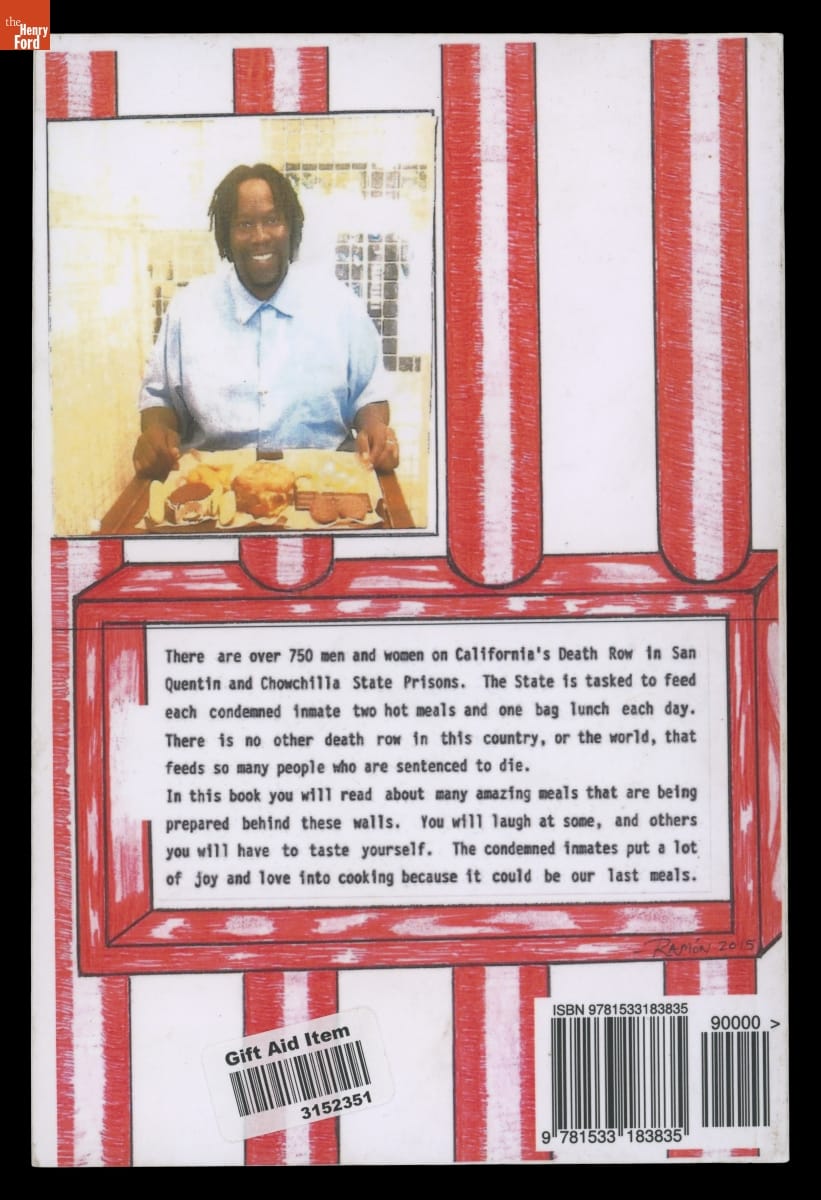 the
Henry
Ford
There are over 750 men and women on California's Death Row in San
Quentin and Chowchilla State Prisons. The State is tasked to feed
each condemned inmate two hot meals and one bag lunch each day.
There is no other death row in this country, or the world, that
feeds so many people who are sentenced to die.
In this book you will read about many amazing meals that are being
prepared behind these walls. You will laugh at some, and others
you will have to taste yourself. The condemned inmates put a lot
of joy and love into cooking because it could be our last meals.
RAMÓN 2015
Gift Aid Item
3152351
ISBN 9781533183835
90000 >
9 781533 183835